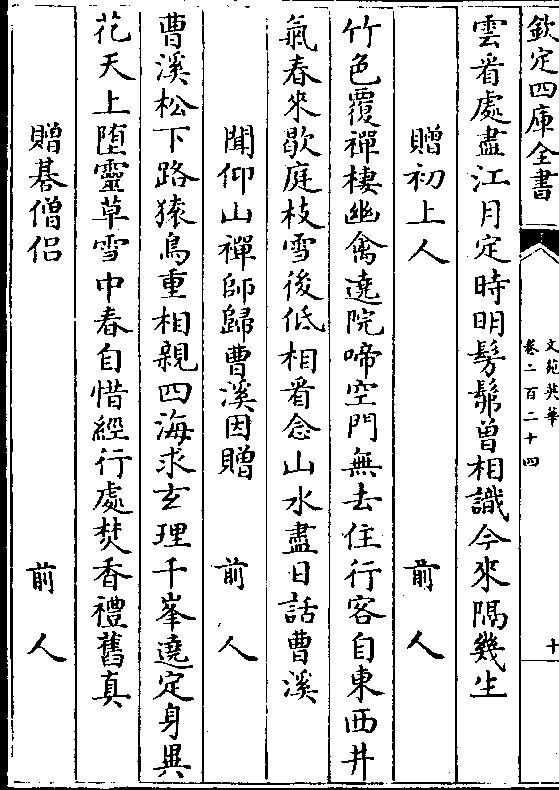 欽定四庫全書
文苑英華
卷二百二十四
十
雲看處盡江月定時明髣髴曾相識今來隔幾生
贈初上人 前人
竹色覆禪棲幽禽遶院啼空門無去住行客自東西井
氣春來歇庭枝雪後低相看念山水盡日話曹溪
聞仰山禪師歸曹溪因贈 前人
曹溪松下路猿鳥重相親四海求玄理千峯遶定身異
花天上墮靈草雪中春自惜經行處焚香禮舊真
贈碁僧侶 前人